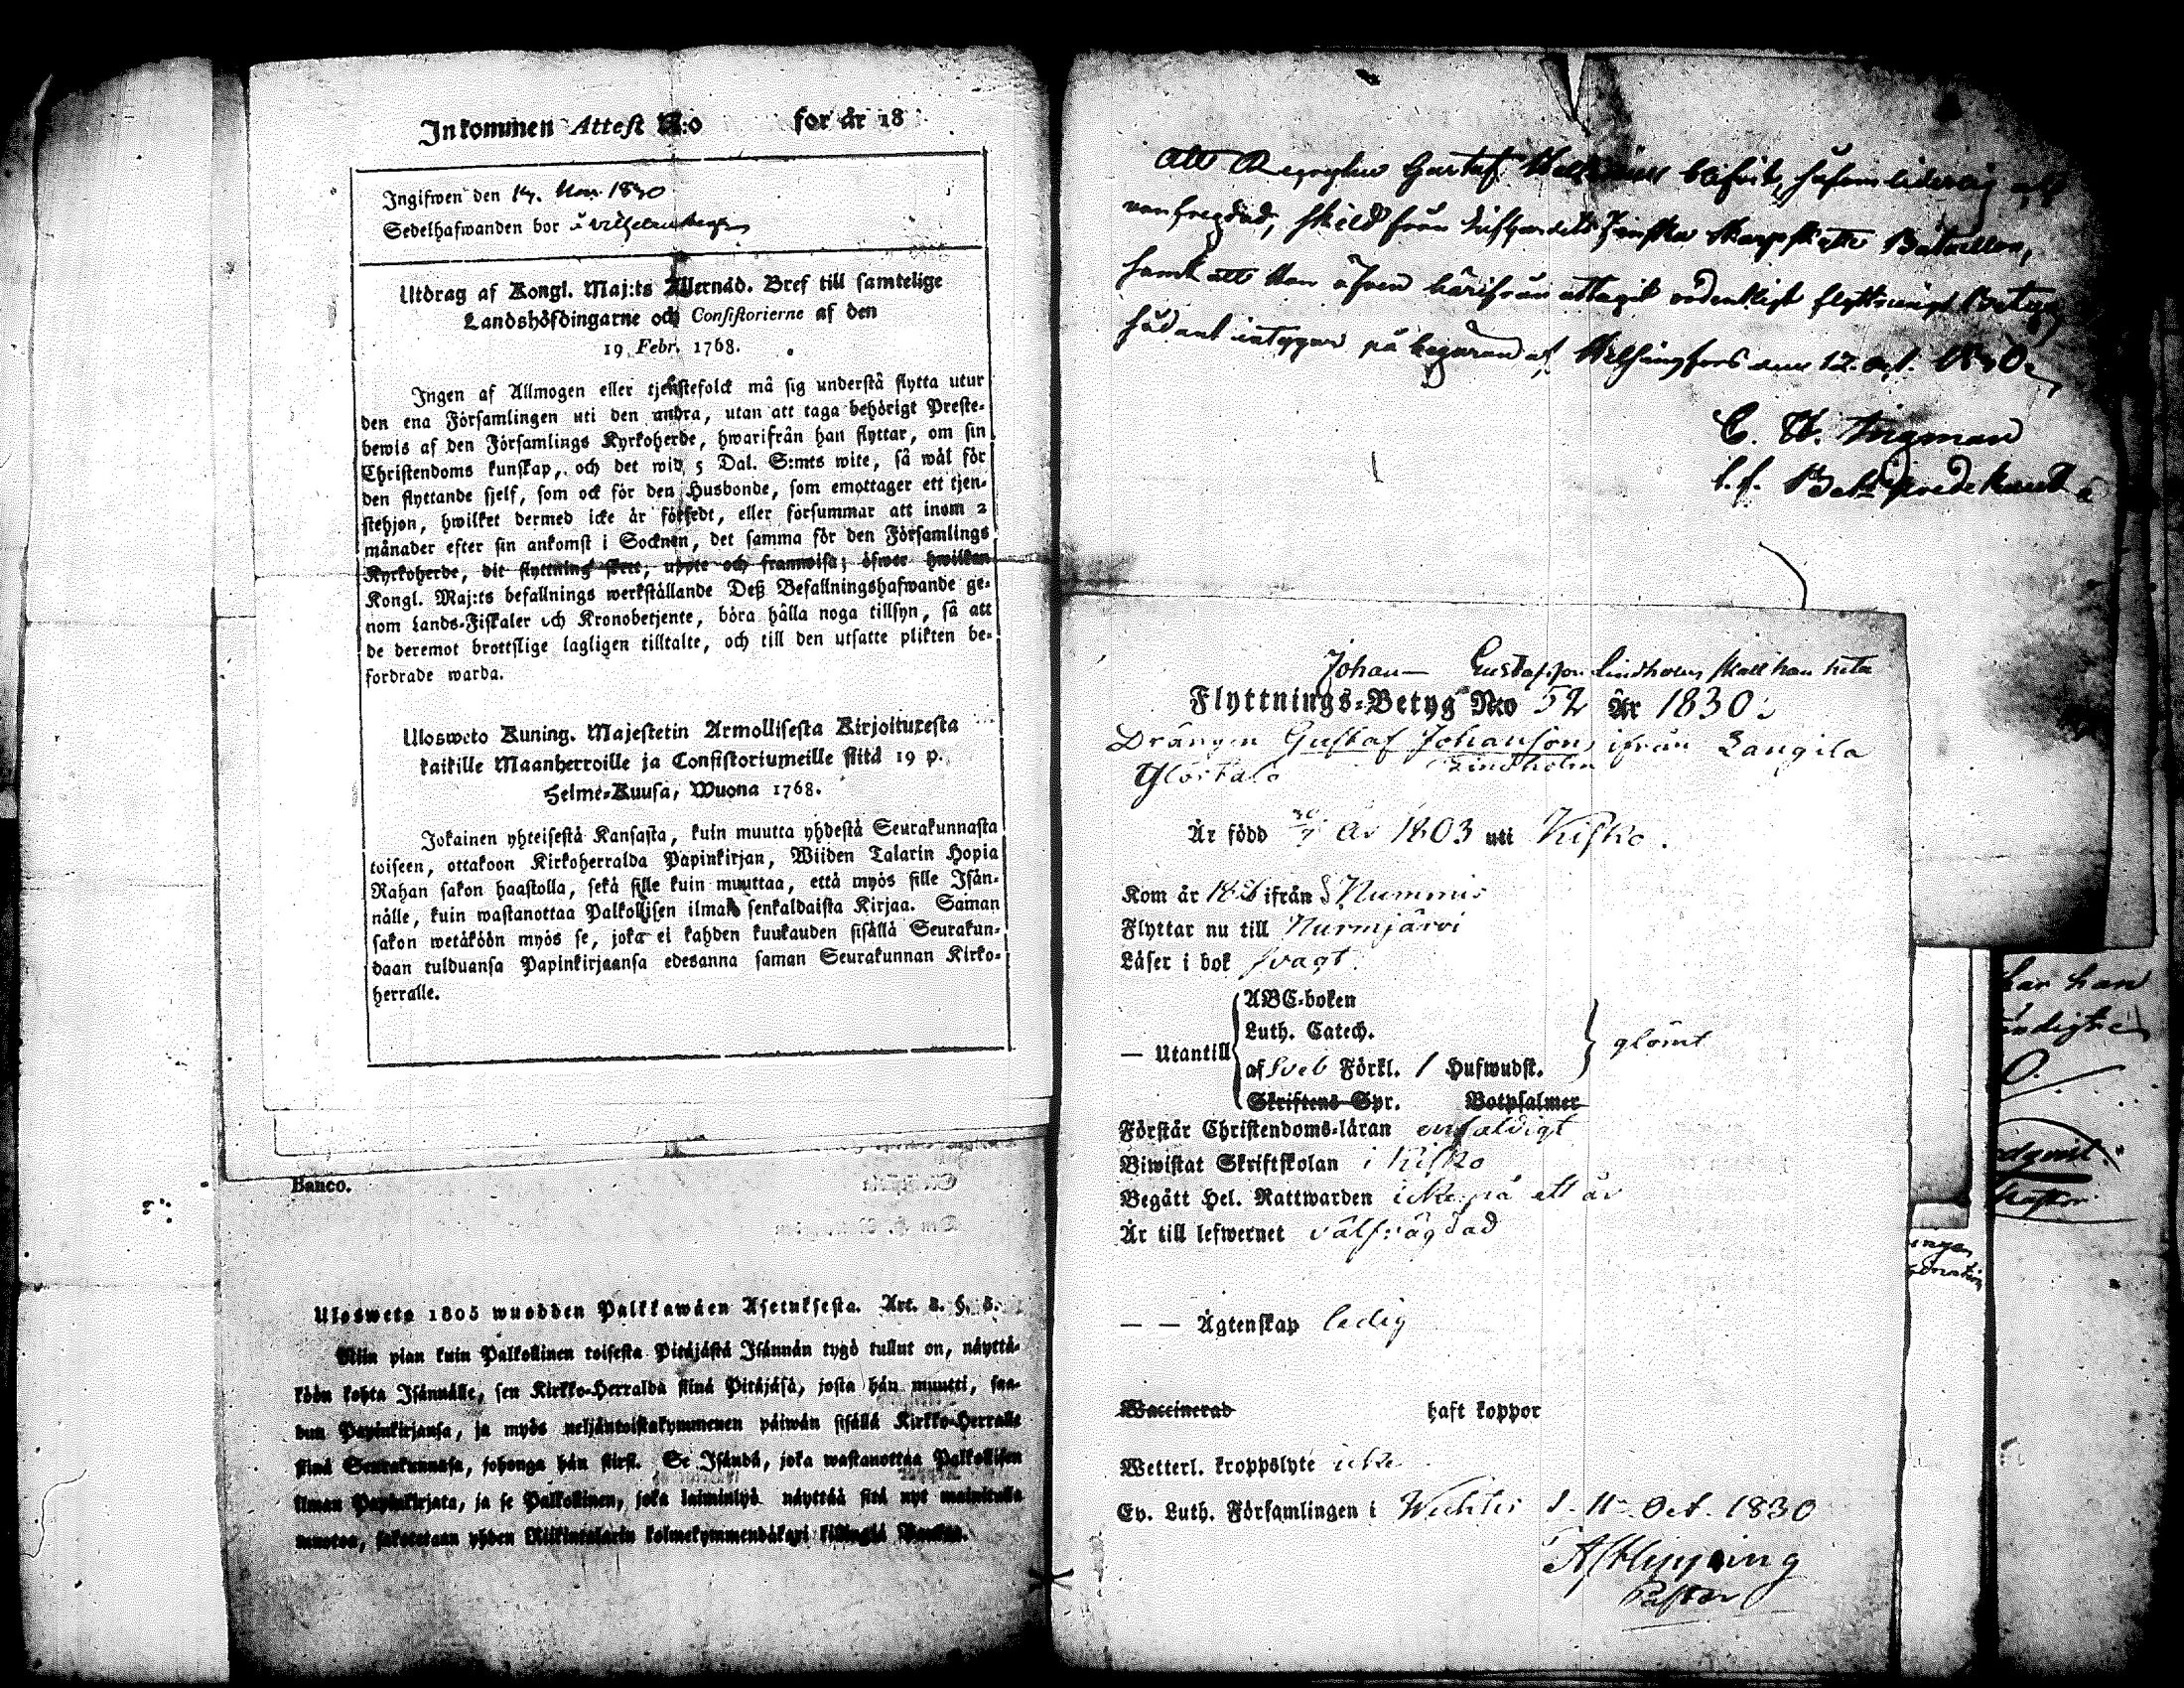 Inkommen Attest N:o for år 18
Ingifwen den 14. Nov. 1830
Sedelhafwanden bor å
Utdrag af Kongl. Maj:ts Allernåd. Bref till samtelige
Landshöfdingarne och Consistorierne af den
19 Febr. 1768.
Ingen af Allmogen eller tjenstefolck må sig understå flytta utur
den ena Församlingen uti den andra, utan att taga behörigt Preste-
bewis af den Församlings Kyrkoherde, hwarifrån han flyttar, om sin
Christendoms kunskap, och det wid 5 Dal. S:mts wite, så wäl för
den flyttande sjelf, som ock för den Husbonde, som emottager ett tjen-
stehjon, hwilket dermed icke är försedt, eller försummar att inom 2
månader efter sin ankomst i Socknen, det samma för den Församlings
Kyrkoherde, dit flyttning skett, uppte och framwisa; öfwer hwilken
Kongl. Maj:ts befallnings werkställande Deß Befallningshafwande ge-
nom Lands-Fiskaler och Kronobetjente, böra hålla noga tillsyn, så att
de deremot brottslige lagligen tilltalte, och till den utsatte plikten be-
fordrade warda.
Uloswcto Kuning. Majestetin Armollisesta Kirjoituxesta
kaikille Maanherroille ja Consistoriumeille siitä 19 p.
Helme-Kuusa, Wuona 1768.
Jokainen yhteisestä Kansasta, kuin muutta yhdestä Seurakunnasta
toiseen, ottakoon Kirkoherralda Papinkirjan, Wiiden Talarin Hopia
Rahan sakon haastolla, sekä sille kuin muuttaa, että myös sille Isän-
nälle, kuin wastanottaa Palkollisen ilman senkaldaista Kirjaa. Saman
sakon wetäköön myös se, joka ei kahden kuukauden sisällä Seurakun-
daan tulduansa Papinkirjaansa edesanna saman Seurakunnan Kirko-
herralle.
Banco.
Ulosweto 1805 wuodden Palkkawäen Asetuksesta. Art. 2. §. 5.
Niin pian kuin Palkollinen toisesta Pitäjästä Isännän tygö tullut on, näyttä-
köön kohta Isännälle, sen Kirkko-Herralda siinä Pitäjäsä, josta hän muutti, saa-
dun Papinkirjansa, ja myös neljäntoistakymmenen päiwän sisällä Kirkko-Herralle
siinä Seurakunnasa, johonga hän siirst. Se Isändä, joka wastanottaa Palkollisen
ilman Papinkirjata, ja se Palkollinen, joka laiminlyö näyttää sitä nyt mainitulla
muotoa, sakotetaan yhden Riikintalarin kolmekymmendäkaxi killingiä Bankoa.
Att Gustaf
skild från Finska Skarpskytte Bataillon,
samt att han äfven härifrån uttagit ordentligt flyttnings Betyg,
sådant intygar på begäran af Helsingfors den 12. Oct. 1830.
C. W. Ingman
t. f. Bat. predikant
Johan Gustafsson Lindholm skall han heta
Flyttnings-Betyg N:o 52 År 1830.
Drängen Gustaf Johansson ifrån Langila
Lindholm
Är född år 1803 uti Kisko.
Kom år ifrån Nummis
Flyttar nu till Nurmijärvi
Läser i bok svagt.
ABC-boken
Luth. Catech.
— Utantill af Sveb Förkl. 1 Hufwudst. glömt
Skriftens Spr. Botpsalmer
Förstår Christendoms-läran enfaldigt
Biwistat Skriftskolan i Kisko
Begått Hel. Nattwarden icke på ett år
Är till lefwernet välfrägdad
— — Ägtenskap ledig
Waccinerad haft koppor
Wetterl. kroppslyte icke
Ev. Luth. Församlingen i Wichtis d. 11 Oct. 1830
Pastor
har han